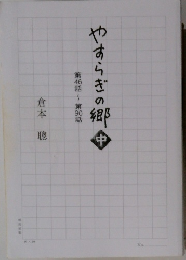 やすらぎの郷
中
第46話～第90話
倉本 聰